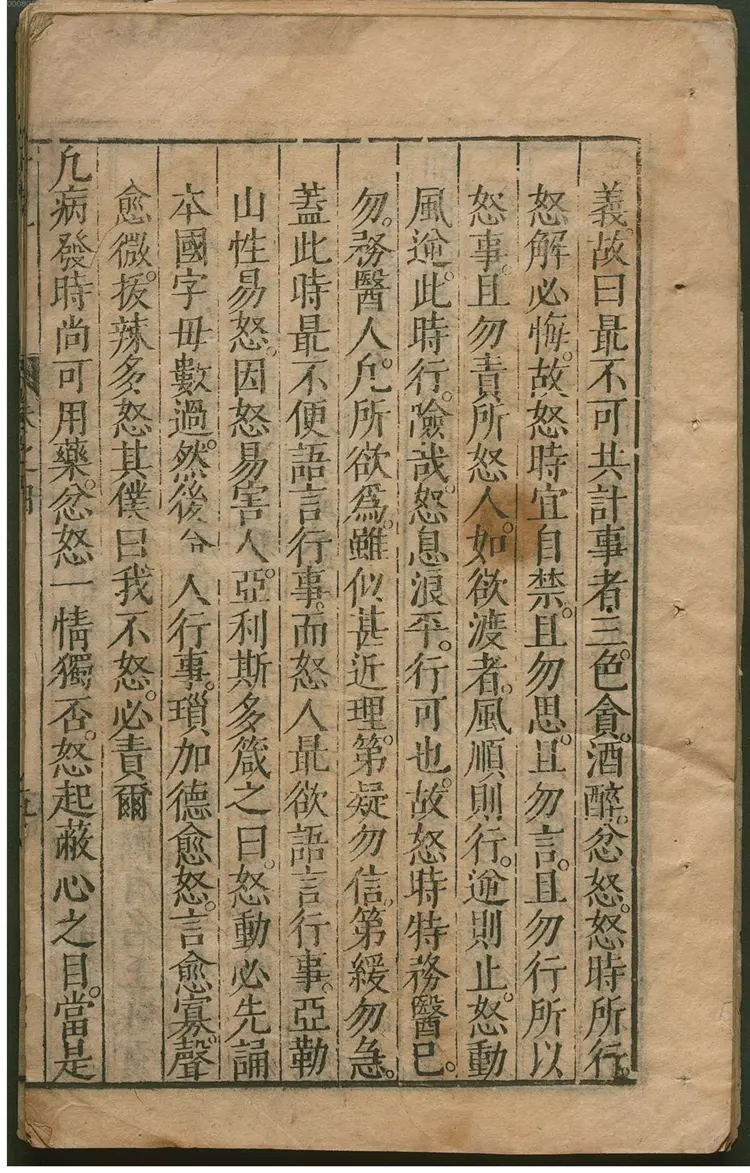 義。故曰最不可共計事者三。色貪。酒醉。忿怒。怒時所行。
怒解必悔。故怒時宜自禁。且勿思。且勿言。且勿行所以
怒事。且勿責所怒人。如欲渡者。風順則行。逆則止。怒動
風逆。此時行。險哉。怒息浪平。行可也。故怒時特務醫已。
勿務醫人。凢所欲爲。雖似甚近理。第疑勿信。第緩勿急。
蓋此時最不便語言行事。而怒人最欲語言行事。亞勒
山性易怒。因怒易害人。亞利斯多箴之曰。怒動必先誦
本國字母數過。然後兮人行事。瑣加德愈怒。言愈寡。聲
愈微。㧞辣多怒其僕曰我不怒。必責爾
凢病發時尚可用藥。忿怒一情獨否。怒起蔽心之目。當是
卷之四